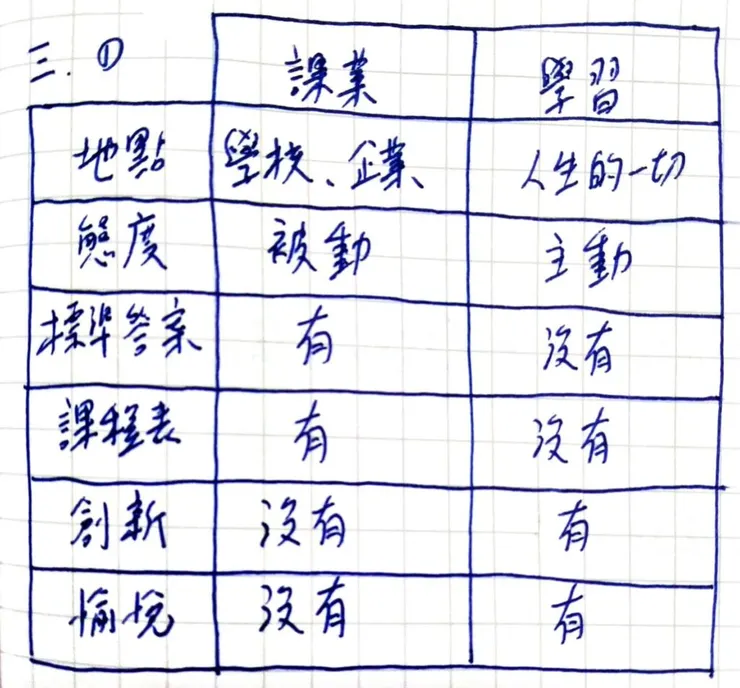 三. ①
課業 學習
地點 學校、企業、 人生的一切
態度 被動 主動
標準答案 有 沒有
課程表 有 沒有
創新 沒有 有
愉悅 沒有 有